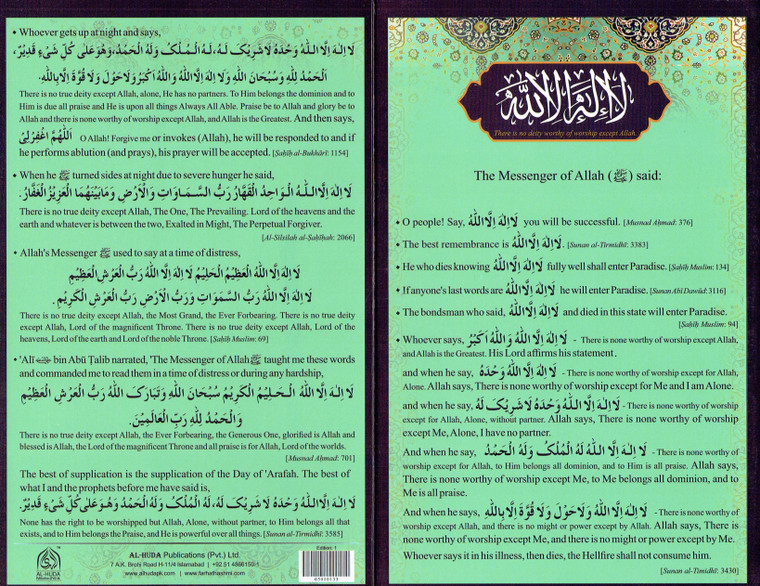 • Whoever gets up at night and says,
لَا إِلٰهَ إِلَّا اللهُ وَحْدَهُ لَا شَرِيْكَ لَهُ، لَهُ الْمُلْكُ وَلَهُ الْحَمْدُ، وَهُوَ عَلٰى كُلِّ شَيْءٍ قَدِيْرٌ،
اَلْحَمْدُ لِلّٰهِ وَ سُبْحَانَ اللهِ وَلَا إِلٰهَ إِلَّا اللهُ وَاللهُ أَكْبَرُ وَلَا حَوْلَ وَلَا قُوَّةَ إِلَّا بِاللهِ.
There is no true deity except Allah, alone, He has no partners. To Him belongs the dominion and to
Him is due all praise and He is upon all things Always All Able. Praise be to Allah and glory be to
Allah and there is none worthy of worship except Allah, and Allah is the Greatest. And then says,
اَللّٰهُمَّ اغْفِرْلِيْ O Allah! Forgive me or invokes (Allah), he will be responded to and if
he performs ablution (and prays), his prayer will be accepted. [Saḥīḥ al-Bukhārī: 1154]
• When he ﷺ turned sides at night due to severe hunger he said,
لَا إِلٰهَ إِلَّا اللهُ الْوَاحِدُ الْقَهَّارُ رَبُّ السَّمَاوَاتِ وَالْأَرْضِ وَمَا بَيْنَهُمَا الْعَزِيْزُ الْغَفَّارُ.
There is no true deity except Allah, The One, The Prevailing. Lord of the heavens and the
earth and whatever is between the two, Exalted in Might, The Perpetual Forgiver.
[Al-Silsilah al-Ṣaḥīḥah: 2066]
• Allah's Messenger ﷺ used to say at a time of distress,
لَا إِلٰهَ إِلَّا اللهُ الْعَظِيْمُ الْحَلِيْمُ لَا إِلٰهَ إِلَّا اللهُ رَبُّ الْعَرْشِ الْعَظِيْمِ
لَا إِلٰهَ إِلَّا اللهُ رَبُّ السَّمٰوَاتِ وَرَبُّ الْأَرْضِ رَبُّ الْعَرْشِ الْكَرِيْمِ.
There is no true deity except Allah, the Most Grand, the Ever Forbearing. There is no true deity
except Allah, Lord of the magnificent Throne. There is no true deity except Allah, Lord of the
heavens, Lord of the earth and Lord of the noble Throne. [Ṣaḥīḥ Muslim: 69]
• 'Alī bin Abū Ṭalib narrated, 'The Messenger of Allah ﷺ taught me these words
and commanded me to read them in a time of distress or during any hardship,
لَا إِلٰهَ إِلَّا اللهُ الْحَلِيْمُ الْكَرِيْمُ سُبْحَانَ اللهِ وَتَبَارَكَ اللهُ رَبُّ الْعَرْشِ الْعَظِيْمِ
وَالْحَمْدُ لِلّٰهِ رَبِّ الْعَالَمِيْنَ.
There is no true deity except Allah, the Ever Forbearing, the Generous One, glorified is Allah and
blessed is Allah, the Lord of the magnificent Throne and all praise is for Allah, Lord of the worlds.
[Musnad Aḥmad: 701]
The best of supplication is the supplication of the Day of 'Arafah. The best of
what I and the prophets before me have said is,
لَا إِلٰهَ إِلَّا اللهُ وَحْدَهُ لَا شَرِيْكَ لَهُ، لَهُ الْمُلْكُ وَلَهُ الْحَمْدُ وَهُوَ عَلٰى كُلِّ شَيْءٍ قَدِيْرٌ.
None has the right to be worshipped but Allah, Alone, without partner, to Him belongs all that
exists, and to Him belongs the Praise, and He is powerful over all things. [Sunan al-Tirmidhī: 3585]
AL-HUDA
AL-HUDA Publications (Pvt.) Ltd.
7 A.K. Brohi Road H-11/4 Islamabad | +92 51 4866150-1
www.alhudapk.com | www.farhathashmi.com
Edition: 1
لا إله إلا الله
There is no deity worthy of worship except Allah.
The Messenger of Allah (ﷺ) said:
• O people! Say, لَا إِلٰهَ إِلَّا اللهُ you will be successful. [Musnad Aḥmad: 376]
• The best remembrance is لَا إِلٰهَ إِلَّا اللهُ. [Sunan al-Tirmidhī: 3383]
• He who dies knowing لَا إِلٰهَ إِلَّا اللهُ fully well shall enter Paradise. [Ṣaḥīḥ Muslim: 134]
• If anyone's last words are لَا إِلٰهَ إِلَّا اللهُ he will enter Paradise. [Sunan Abī Dawūd: 3116]
• The bondsman who said, لَا إِلٰهَ إِلَّا اللهُ and died in this state will enter Paradise.
[Ṣaḥīḥ Muslim: 94]
• Whoever says, لَا إِلٰهَ إِلَّا اللهُ وَاللهُ أَكْبَرُ - There is none worthy of worship except Allah,
and Allah is the Greatest. His Lord affirms his statement.
and when he say, لَا إِلٰهَ إِلَّا اللهُ وَحْدَهُ - There is none worthy of worship except for Allah,
Alone. Allah says, There is none worthy of worship except for Me and I am Alone.
and when he say, لَا إِلٰهَ إِلَّا اللهُ وَحْدَهُ لَا شَرِيْكَ لَهُ - There is none worthy of worship
except for Allah, Alone, without partner. Allah says, There is none worthy of worship
except Me, Alone, I have no partner.
And when he say, لَا إِلٰهَ إِلَّا اللهُ لَهُ الْمُلْكُ وَلَهُ الْحَمْدُ - There is none worthy of
worship except for Allah, to Him belongs all dominion, and to Him is all praise. Allah says,
There is none worthy of worship except Me, to Me belongs all dominion, and to
Me is all praise.
And when he says, لَا إِلٰهَ إِلَّا اللهُ وَلَا حَوْلَ وَلَا قُوَّةَ إِلَّا بِاللهِ - There is none worthy of
worship except Allah, and there is no might or power except by Allah. Allah says, There is
none worthy of worship except Me, and there is no might or power except by Me.
Whoever says it in his illness, then dies, the Hellfire shall not consume him.
[Sunan al-Timidhī: 3430]